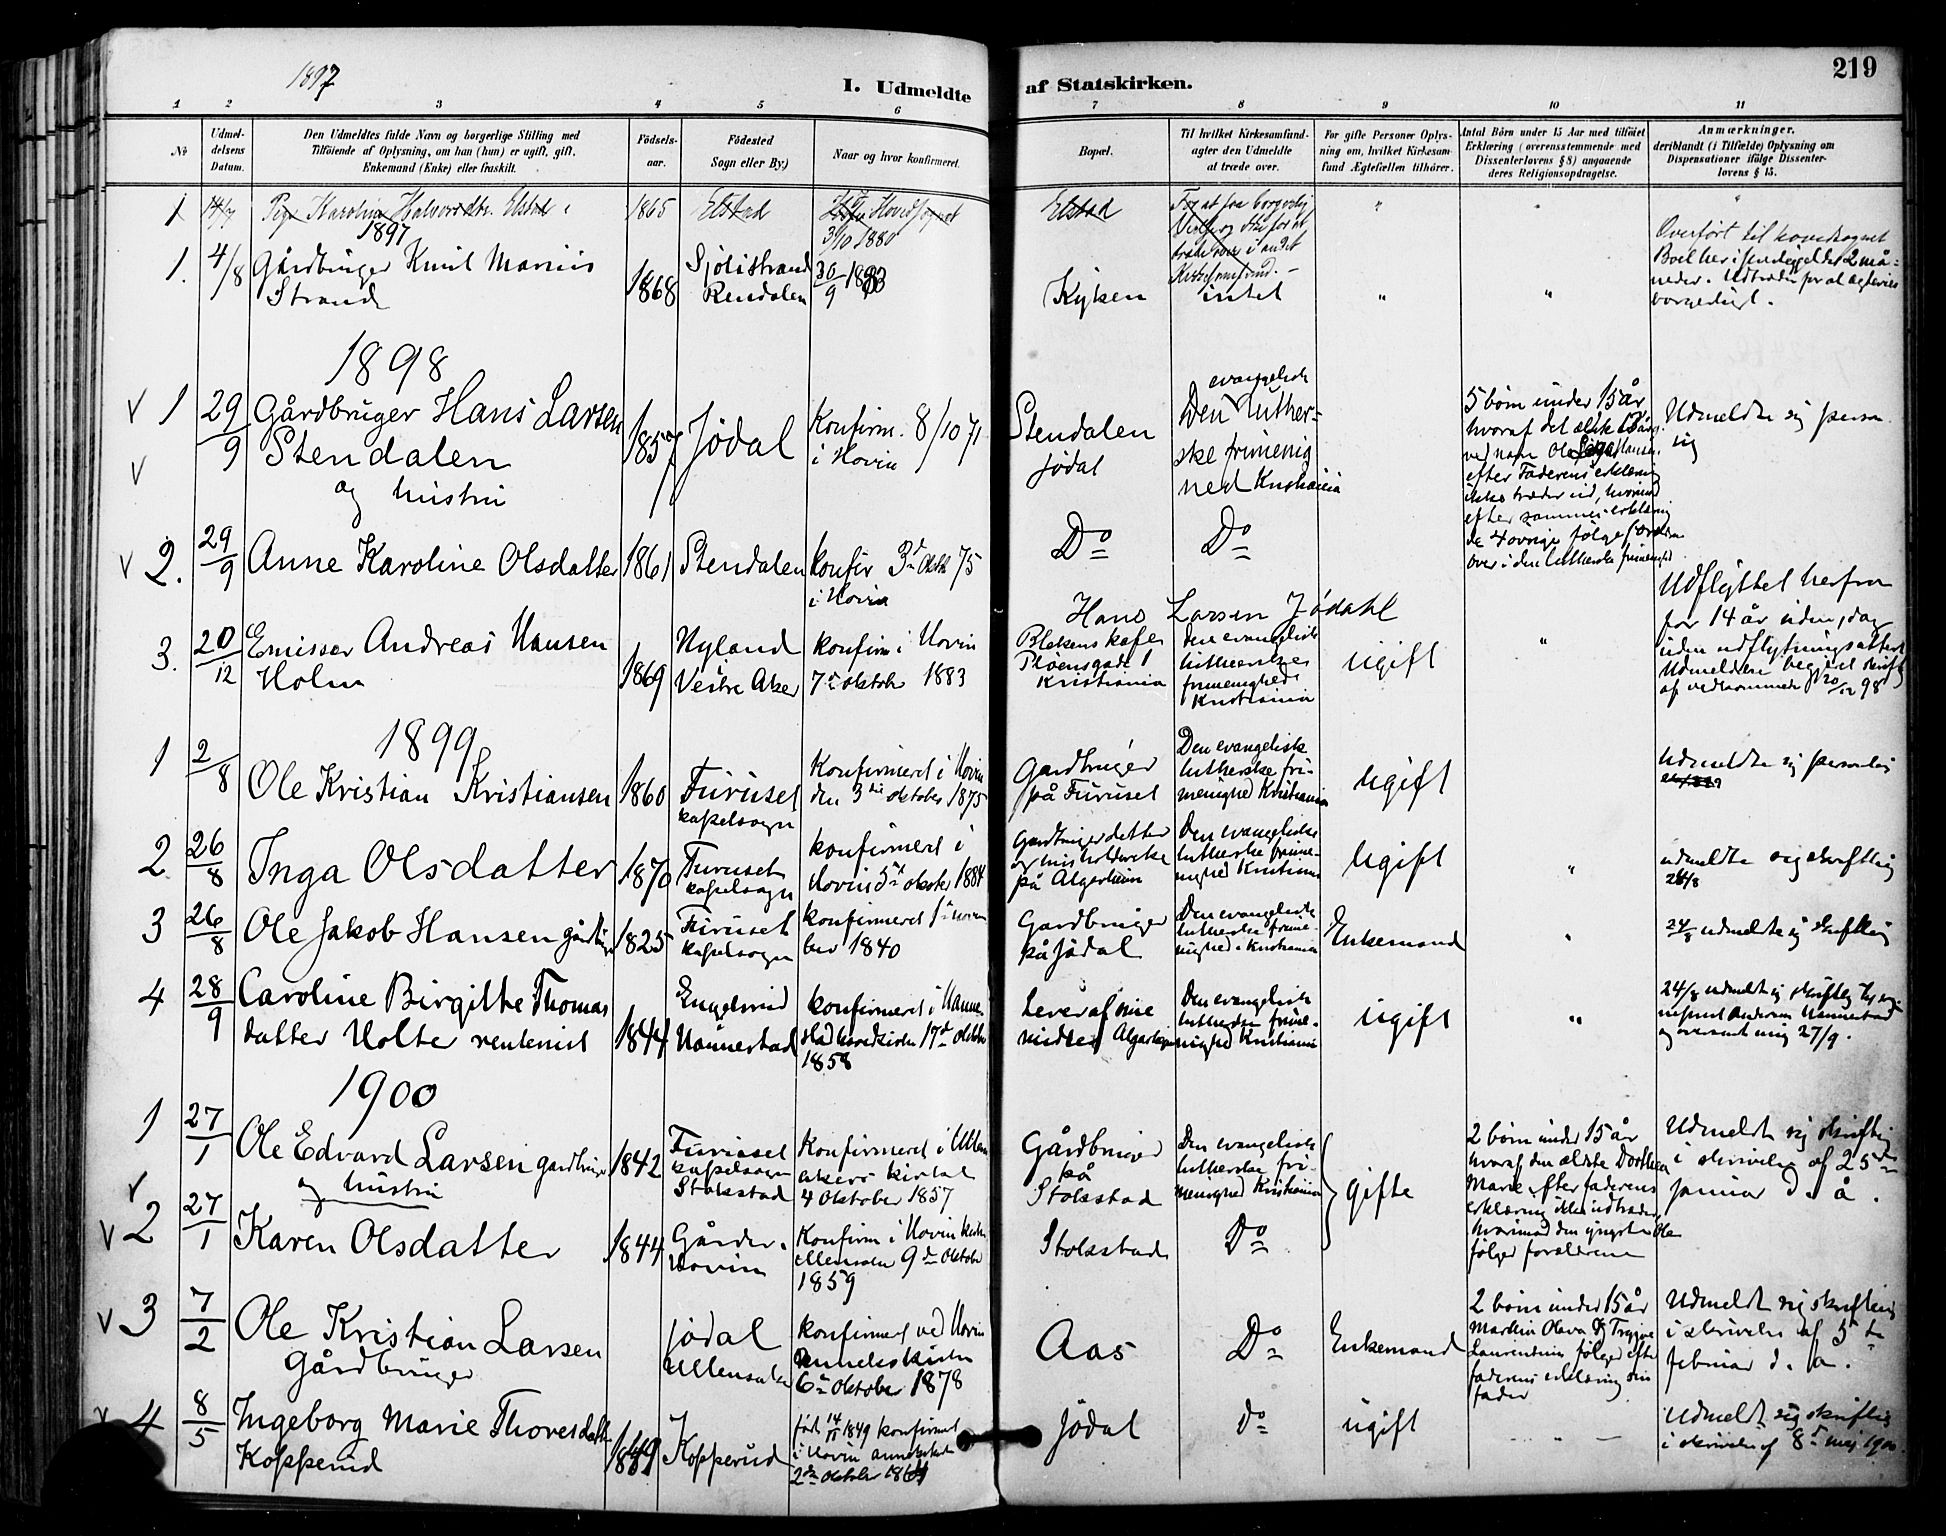 1897
I. Udmeldte
af Statskirken.
219
1 2 3 4 5 6 7 8 9 10 11
No
Udmel-
delsens
Datum.
Den Udmeldtes fulde Navn og borgerlige Stilling med
Tilføiende af Oplysning, om han (hun) er ugift, gift,
Enkemand (Enke) eller fraskilt.
Fødsels-
aar.
Fødested
Sogn eller By.)
Naar og hvor konfirmeret.
Bopæl.
Til hvilket Kirkesamfund-
agter den Udmeldte
at træde over.
For gifte Personer Oplys-
ning om, hvilket Kirkesam-
fund Ægtefællen tilhører.
Antal Børn under 15 Aar med tilføiet
Erklæring (overensstemmende med
Dissenterlovens § 8) angaaende
deres Religionsopdragelse.
Anmærkninger,
deriblandt (i Tilfælde) Oplysning om
Dispensationer ifølge Dissenter-
lovens § 15.
1 14/7 Pige Karoline Halvorsdtr. Elstad 1865 Elstad
Hovedsognet
3/10 1880
Elstad
1897
1. 4/8 Gårdbruger Knut Marius
Strand
1868
Sjölistrand
Rendalen
30/9 1883
Kyken
intet
"
"
Overført til hovedsognet
1898
V 1 29/9 Gårdbruger Hans Larsen
Stendalen
og hustru
1857
Jødal
Konfirm. 8/10 71
i Hovin
Stendalen
Jødal
evangelisk
Den luther-
ske frimenig
hed Kristiania
5 börn under 15 år
hvoraf det ældste
ved navn Ole Hansen
efter Faderens erklæring
ikke træder ud, hvorimod
efter sammes erklæring
de 4 övrige fölge forældrene
over i den lutherske frimenighed
Udmeldte sig person
lig
V 2. 29/9 Anne Karoline Olsdatter 1861 Stendalen
konfir 3d Oktb 75
i Hovin
Do Do
Hans Larsen Jödahl
3. 20/12 Emissær Andreas Hansen
Holm
1869
Nyland
Vestre Aker
konfirm i Hovin
7de oktobr 1883
Kristiania
Den evangelisk
lutherske
frimenighed
Kristiania
ugift
"
Udflyttet herfra
for 14 år siden, dog
uden udflytningsattest
20/12 98
1899
1 2/8 Ole Kristian Kristiansen 1860
Furuset
kapelsogn
Konfirmeret i Hovin
den 3die oktober 1875
Gardbruger
på Furuset
Den evangelisk
lutherske fri-
menighed Kristiania
Ugift
Udmeldte sig personlig
2 26/8 Inga Olsdatter 1870
Furuset
kapelsogn
konfirmeret i
Hovin 5te oktober 1884
Gardbrugerdatter
på Algarheim
Den evangeliske
lutherske frime-
nighed Kristiania
Ugift
"
udmeldte sig skriftlig
24/8
3 26/8 Ole Jakob Hansen gårdbr 1825
Furuset
kapelsogn
konfirmeret 1ste novem
ber 1840
Gardbruger
på Jödal
Den evangeliske
lutherske frime-
nighed i Kristiania
Enkemand
"
24/8 udmeldte sig skriftlig
4 28/9 Caroline Birgitte Thomas
datter Holte rentenist
1844
Engelsrud
Nannestad
konfirmeret i Nanne-
stad hovedkirke 17de oktober
1858
Lever af sine
midler Algarheim
Den evangelisk
lutherske frime-
nighed Kristiania
ugift
"
24/8 udmeldt sig skriftlig
og oversendt mig 27/9.
1900
1 27/1 Ole Edvard Larsen gardbruger
og hustru
1842
Furuset
kapelsogn
Stokstad
Konfirmeret i Ullen
sakers kirke
4 Oktober 1857
Gårdbruger
på
Stokstad
Den evangelisk
lutherske fri-
menighed Kristiania
gifte
2 börn under 15 år
hvoraf den ældste Dorthea
Marie efter faderens
erklæring ikke udtræder,
hvorimod den yngste Ole
følger forældrene
Udmeldt sig skriftlig
i skrivelse af 25de
januar d. å.
V 2 27/1 Karen Olsdatter 1844
Gårder.
Hovin
Konfirm i Hovin kirke
Ullensaker 9de Oktober
1859
Stokstad
Do
V 3 7/2 Ole Kristian Larsen
Gårdbruger
Jödal
Ullensaker
konfirmeret ved Hovin
annekskirke
6te Oktober 1878
Aas Do Enkemand
2 börn under 15 år
Marthin Olava og Trygve
Laurentius følger efter
faderens erklæring sin
fader
Udmeldt sig skriftlig
i skrivelse af 5te
februar d. å.
V 4 8/5 Ingeborg Marie Thoresdatt
Kopperud
1849
Kopperud
født 14/11 1849 konfirmeret
i Hovin annekskirke
2den Oktober 1864
Jödal Do ugift
Udmeldt sig skriftlig
i skrivelse af 8de mai 1900